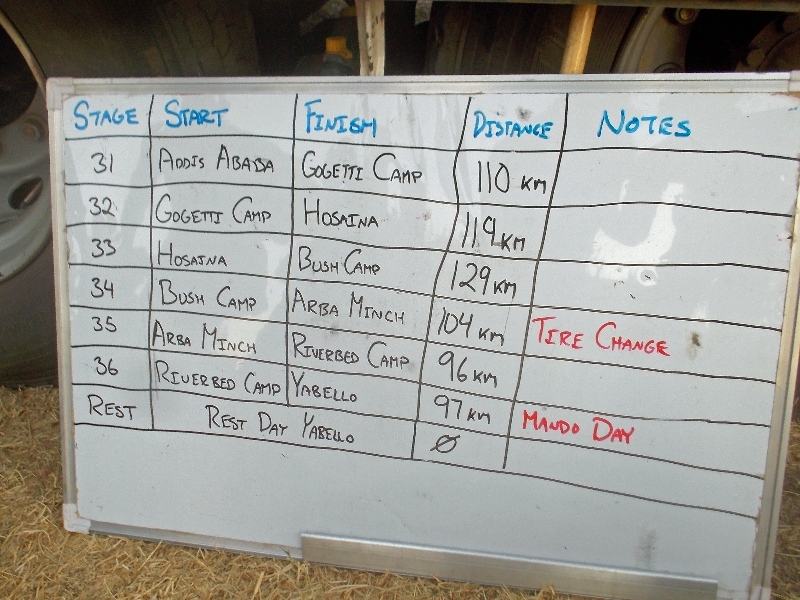 STAGE START FINISH DISTANCE NOTES
31 ADDIS ABABA GOGETTI CAMP 110 KM
32 GOGETTI CAMP HOSAINA 119 KM
33 HOSAINA BUSH CAMP 129 KM
34 BUSH CAMP ARBA MINCH 104 KM TIRE CHANGE
35 ARBA MINCH RIVERBED CAMP 96 KM
36 RIVERBED CAMP YABELLO 97 KM MANDO DAY
REST REST DAY YABELLO Ø